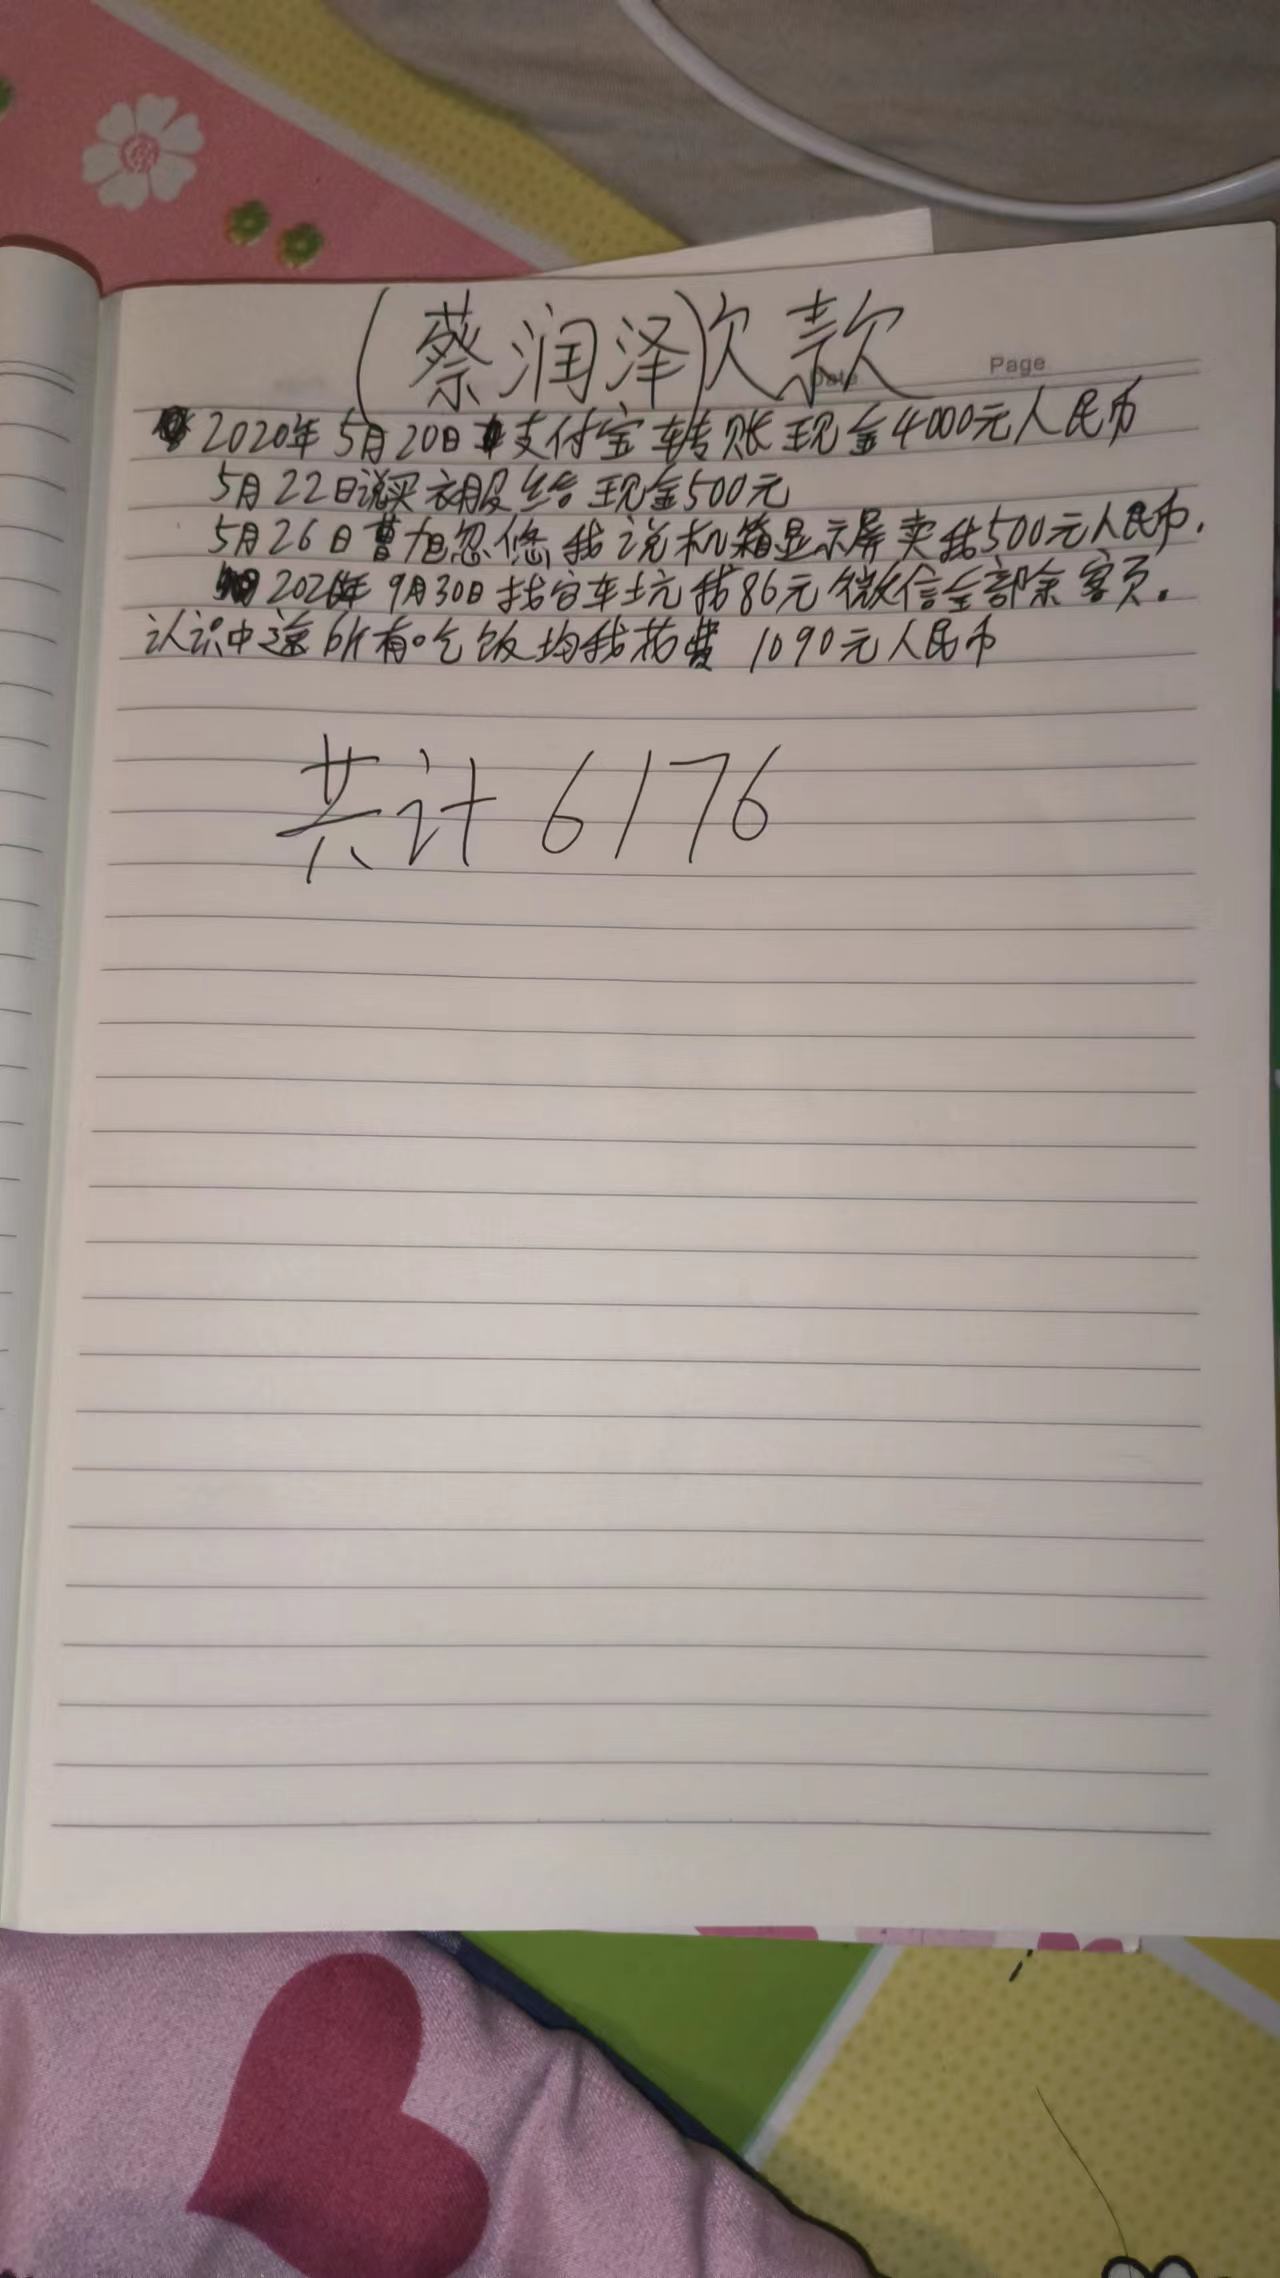 (蔡润泽)欠款
Page
2020年5月20日支付宝转账现金4000元人民币
5月22日说买衣服给现金500元
5月26日曹旭忽悠我说机箱显示屏卖我500元人民币.
9月30日找官车坑我86元微信全部余客页。
认识中途所有吃饭均我花费 1090元人民币
共计6176